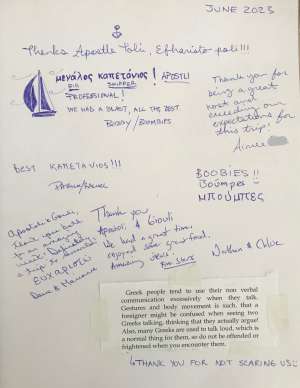 JUNE 2023
Thanks Apostle Poli, Efharisto poli!!!
μεγάλος καπετάνιος! APOSTLI
BIG SKIPPER
PROFESSIONAL!
WE HAD A BLAST, ALL THE BEST
BOBBY/
Thank you for
being a great
host and
exceeding our
expectations for
this trip!
Aimee
BEST ΚΑΠΕΤΑΝΙΟΣ!!!
BOOBIES!!
Βούμπες
ΜΠΟΥΜΠΕΣ
Thank you both
for an amazing
a trip to
ΕΥΧΑΡΙΣΤΩ
Dave &
Thank you
&
We had a great time,
enjoyed some great food.
Amazing views.
Five Stars
& Chloe
Greek people tend to use their non verbal
communication excessively when they talk.
Gestures and body movement is such, that a
foreigner might be confused when seeing two
Greeks talking, thinking that they actually argue!
Also, many Greeks are used to talk loud, which is
a normal thing for them, so do not be offended or
frightened when you encounter them.
THANK YOU FOR NOT SCARING US